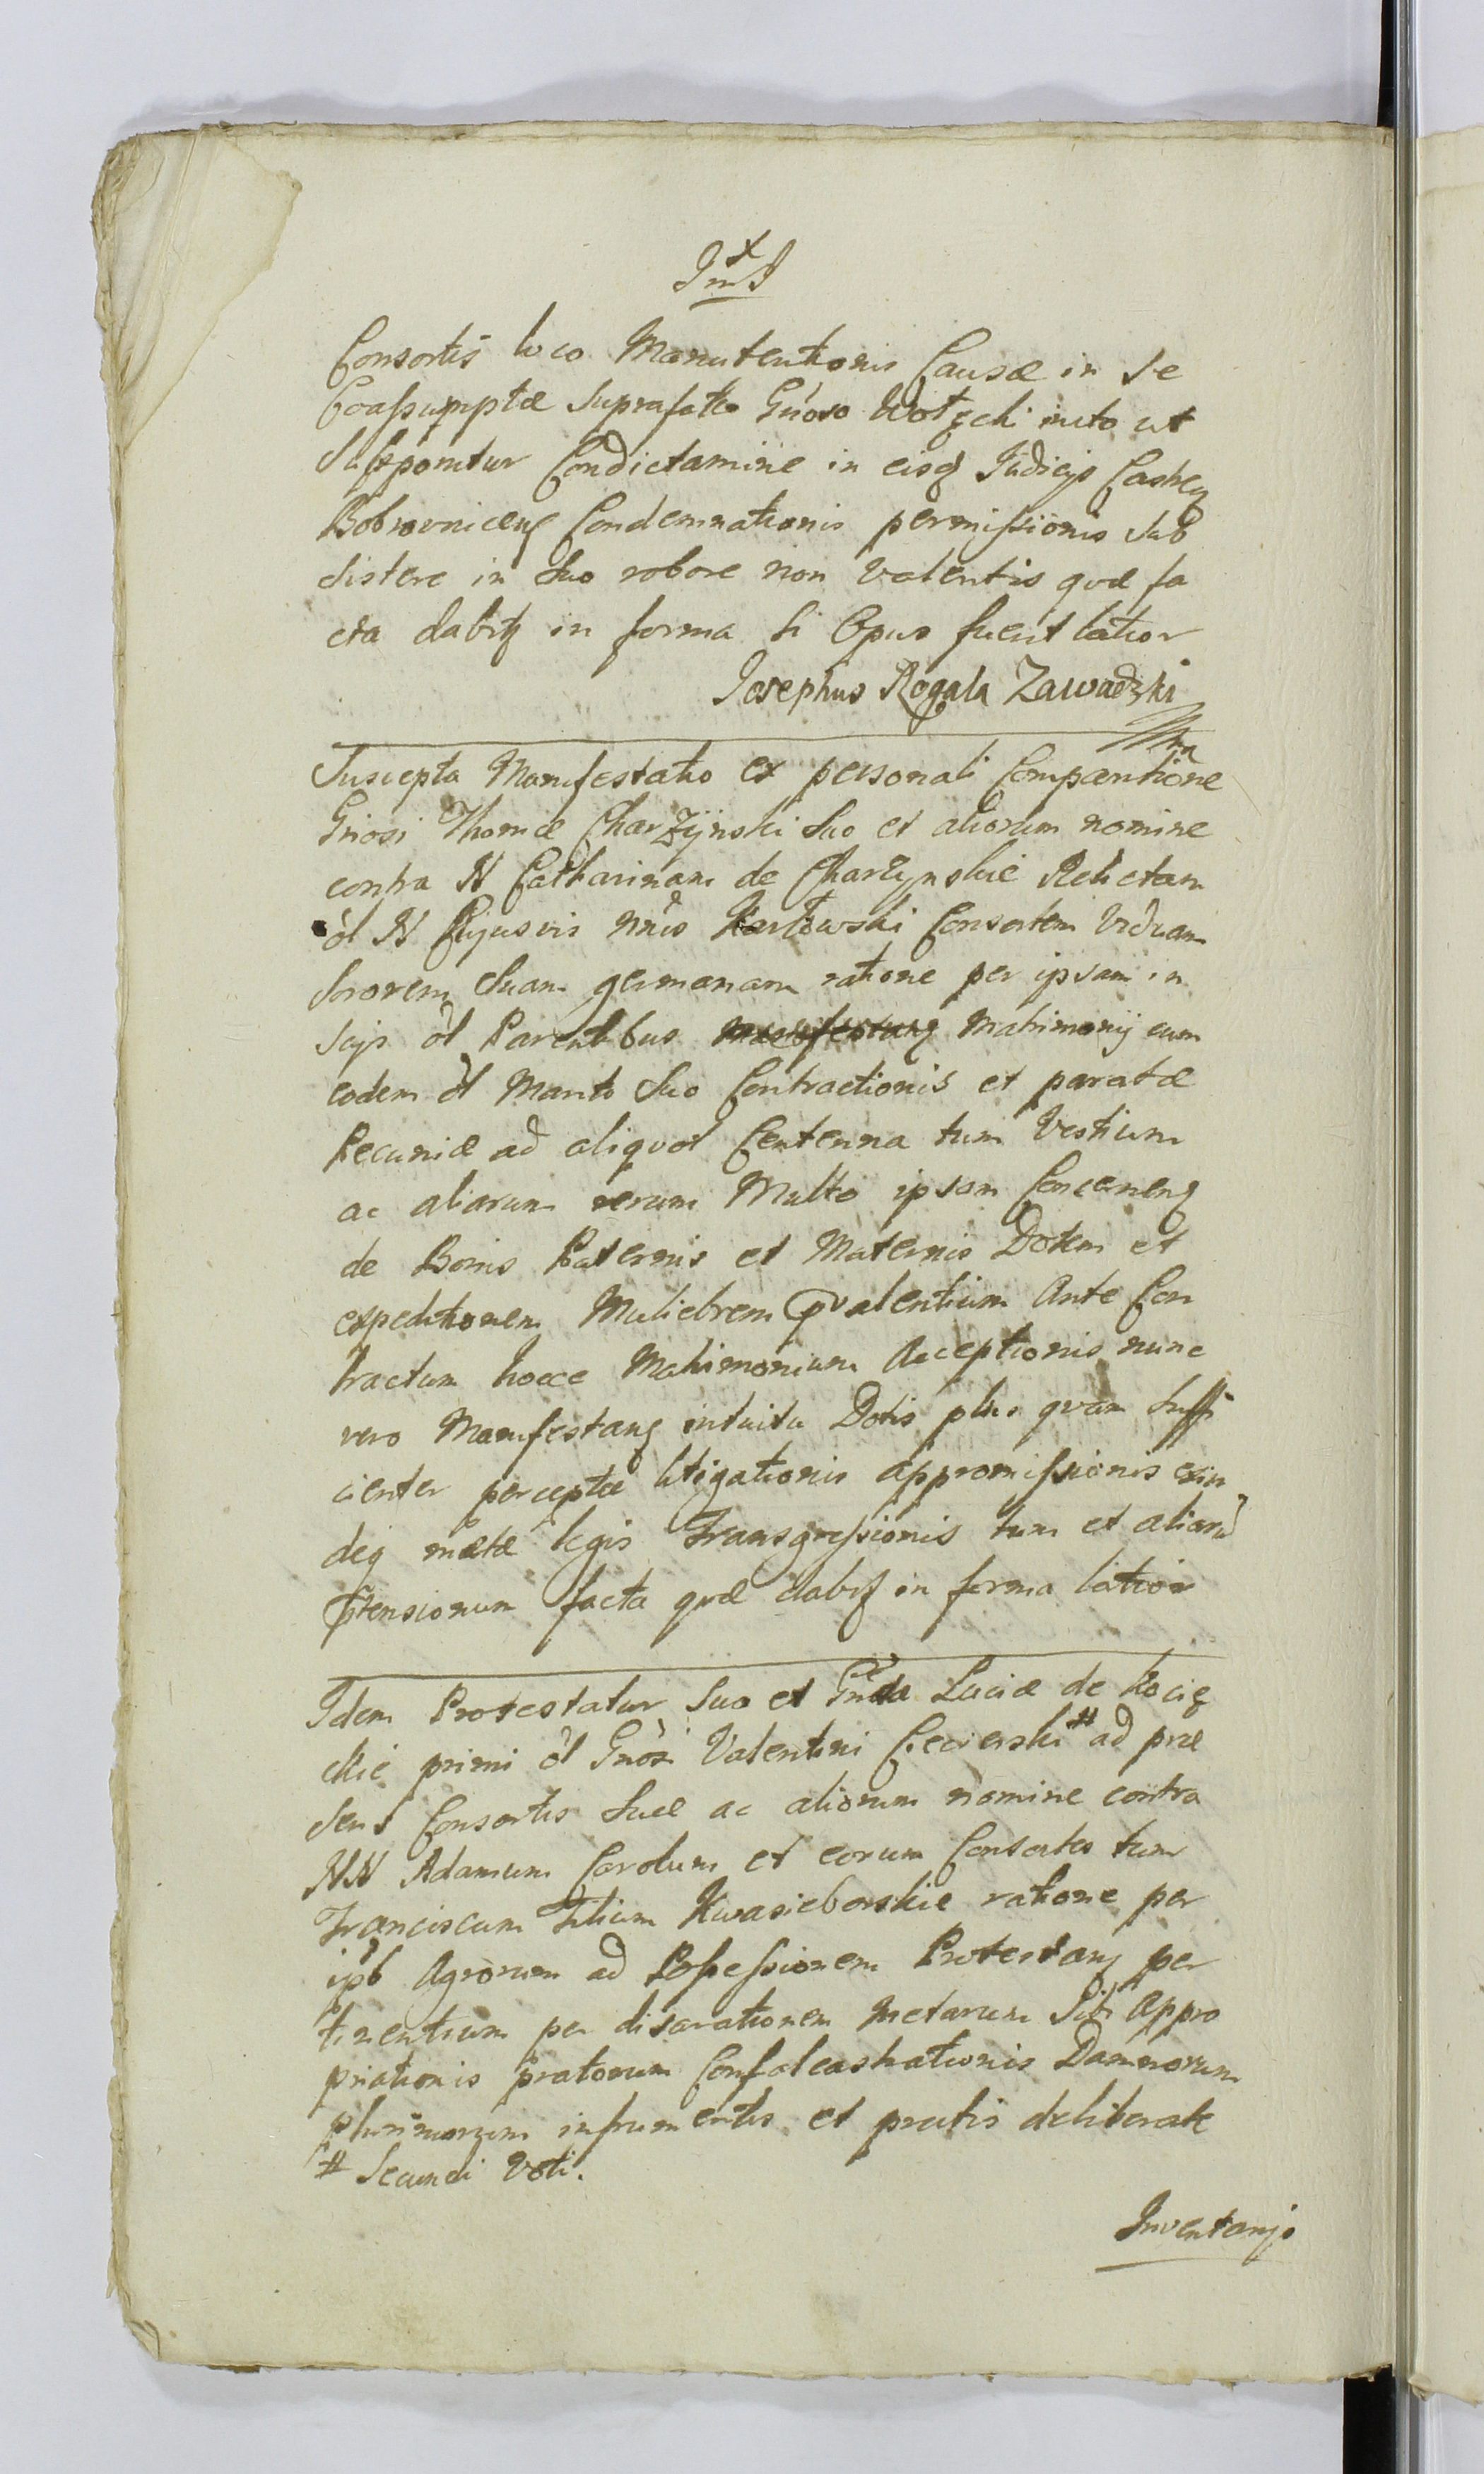 Consortis loco Manutentionis Causæ in se
Coassumptæ Suprafato Gnoso Wolęcki incto ut
Supponitur Condictamine in eisq Judicijs Castreq
Bobrovniceng Condemnationis permissionis Sub
sistere in Suo robore non Valentis quæ fa
cta dabitq in forma Si Opus fuerit latior
Josephus Rogala Zawadzki
Suscepta Manifestatio ex personali Compaentione
Gnosi Thomæ Charzÿnski Suo et aliorum nomine
contra N Catharinam de Charzynskie Relictam
ol N Cujusvis nnis Karłowski Consortem Viduam
Sororem Suam germanam ratione per ipsam in
scijs ol Parentibus Matrimonij cum
eodem ol Marito Suo Contractionis et paratæ
Pecuniæ ad aliquot Centenna tum Vestium
ac aliarum rerum Multo ipsam Concerneng
de Bonis Paternis et Maternis Dotem et
expeditionem Muliebrem pvalentium Ante Con
tractum hocce Matrimonium Acceptionis nunc
vero Manifestang intuitu Dotis plus quam Suffi
cienter perceptæ litigationis appromissionis exin
deq legis Transgressionis tum et aliaru
ptensionum facta quæ dabitq in forma latior
Idem Protestatur Suo et Luciæ de Kocię
ckie primi ol Gnosi Valentini Ciecierski # ad præ
sens Consortis Suæ ac aliorum nomine contra
NN Adamum Carolum et eorum Consortes tum
Franciscum Filium Kwasieborskie ratione per
ipb Agrorum ad Possessionem Protestang per
tinentium per disarationem Metarum Sibi Appro
priationis pratorum Confalcastrationis Damnorum
plurimorum infrumentis et pratis deliberate
# Secundi Voti.
Inventarijo